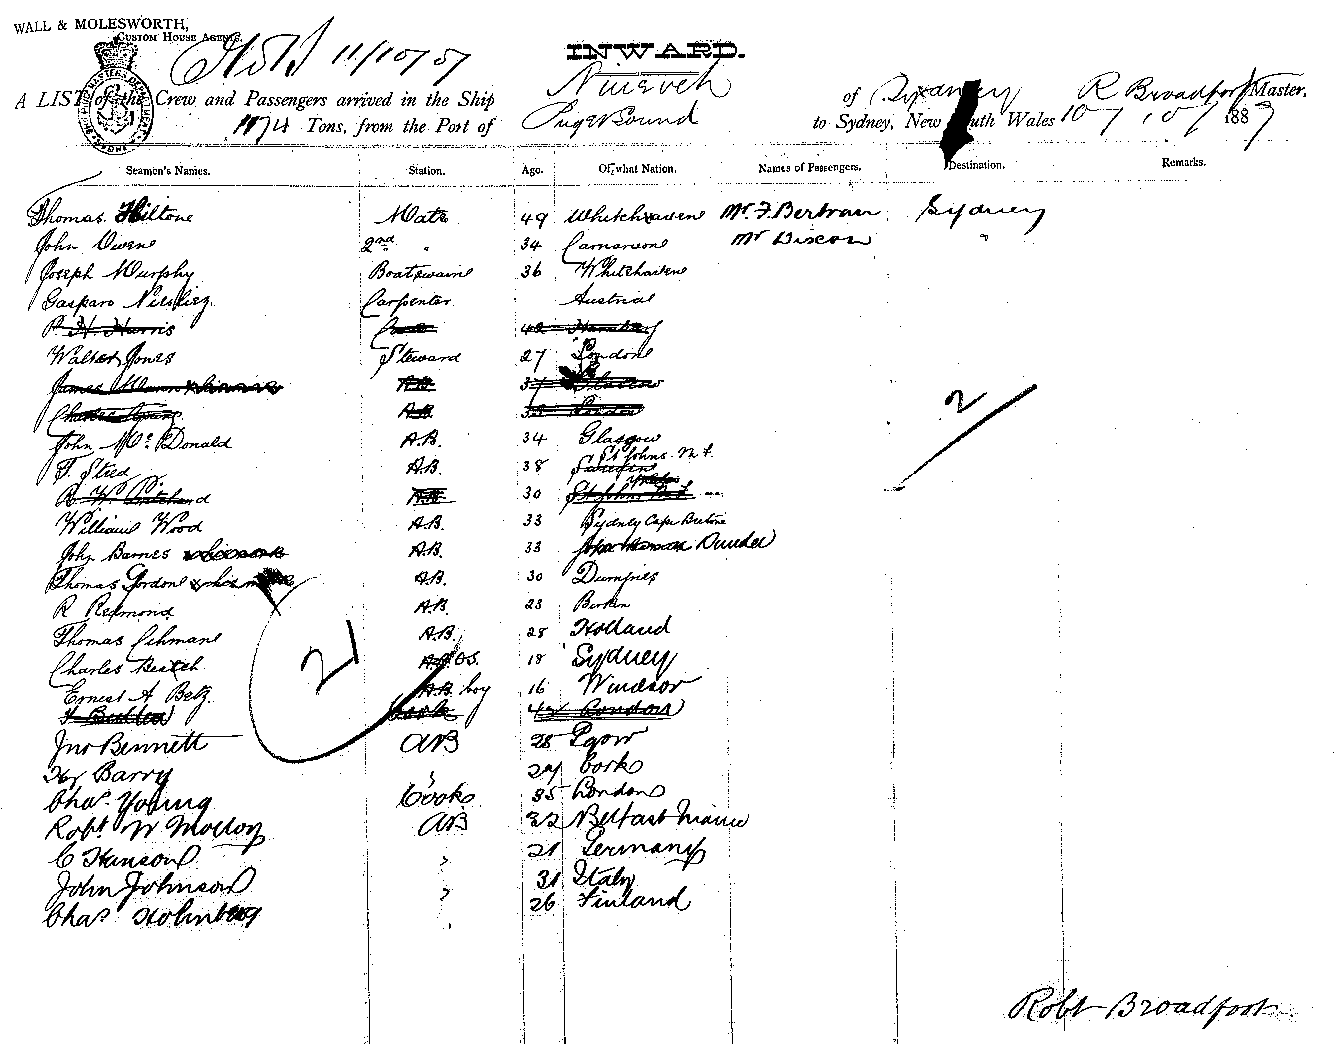 WALL & MOLESWORTH,
CUSTOM HOUSE AGENTS.
11/10/87
INWARD.
A LIST of the Crew and Passengers arrived in the Ship Nineveh of Sydney R Broadfoot Master,
1174 Tons, from the Port of Puget Sound to Sydney, New South Wales 10 / 10 / 1887
Seamen's Names. Station. Age. Of what Nation. Names of Passengers. Destination. Remarks.
Thomas Hiltone Mate 49 Whitehaven Mr. F. Bertram Sydney
John Owens 2nd " 34 Carnarvon Mr Dixon "
Joseph Murphy Boatswain 36 Whitehaven
Gasparo Carpenter Austria
R. H. Harris 42
Walter Jones Steward 27 London
James A.B. 37
Charles Young A.B. 35 London
John McDonald A.B. 34 Glasgow
St Johns N.F.
F. Sted A.B. 38 Sweden
R. W. Pritchard A.B. 30 St Johns N.F.
William Wood A.B. 33 Sydney Cape Breton
John Barnes A.B. 33 Dundee
Thomas Gordon A.B. 30 Dumfries
R Redmond A.B. 23
Thomas Lehmann A.B. 28 Holland
Charles Beatch A.B. O.S. 18 Sydney
Ernest A. Betz A.B. boy 16 Windsor
Cook 42 London
Jno Bennett AB 28
Hy Barry " 27 Cork
Chas. Young Cook 35 London
Robt. W Molloy AB 32 Belfast Maine
C Hanson " 21 Germany
John Johnson " 31 Italy
Chas Holmberg " 26 Finland
2
2
Robt Broadfoot